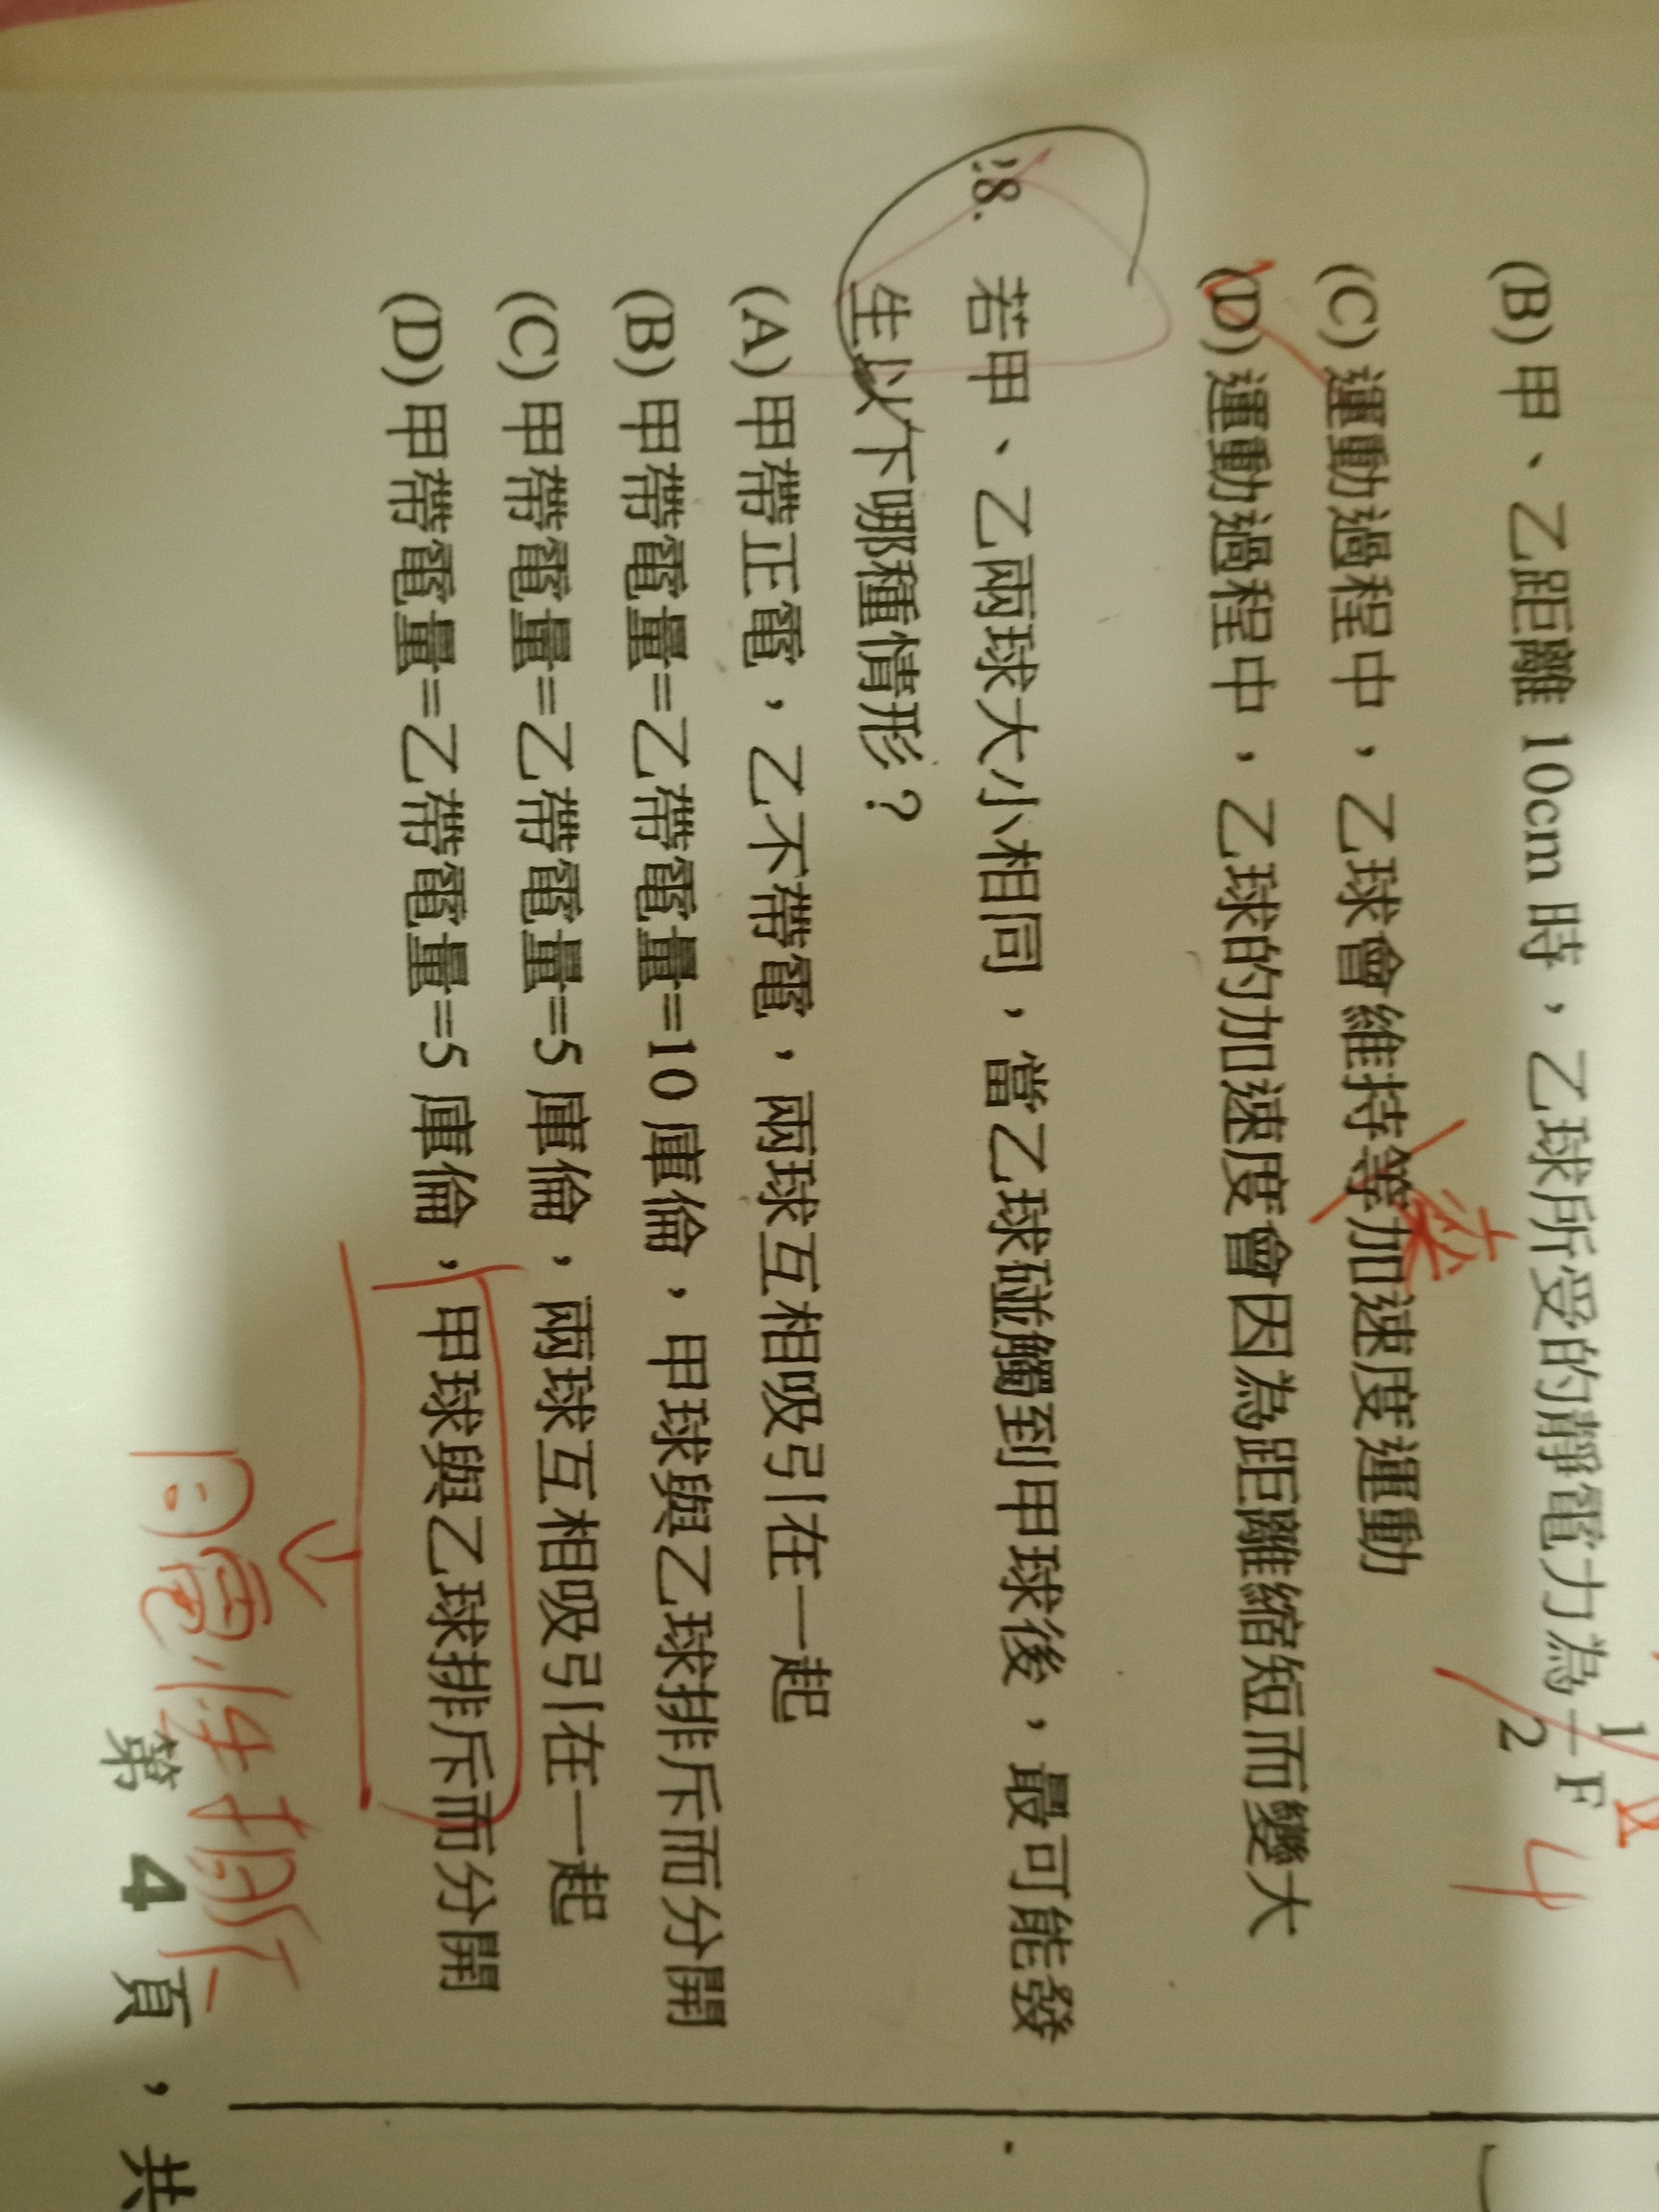 (B) 甲、乙距離 10cm 時，乙球所受的靜電力為 1/2 F
4
(C) 運動過程中，乙球會維持等加速度運動
(D) 運動過程中，乙球的加速度會因為距離縮短而變大
28. 若甲、乙兩球大小相同，當乙球碰觸到甲球後，最可能發
生以下哪種情形？
(A) 甲帶正電，乙不帶電，兩球互相吸引在一起
(B) 甲帶電量=乙帶電量=10 庫倫，甲球與乙球排斥而分開
(C) 甲帶電量=乙帶電量=5 庫倫，兩球互相吸引在一起
(D) 甲帶電量=乙帶電量=5 庫倫，甲球與乙球排斥而分開
同電性相斥
第 4 頁，共